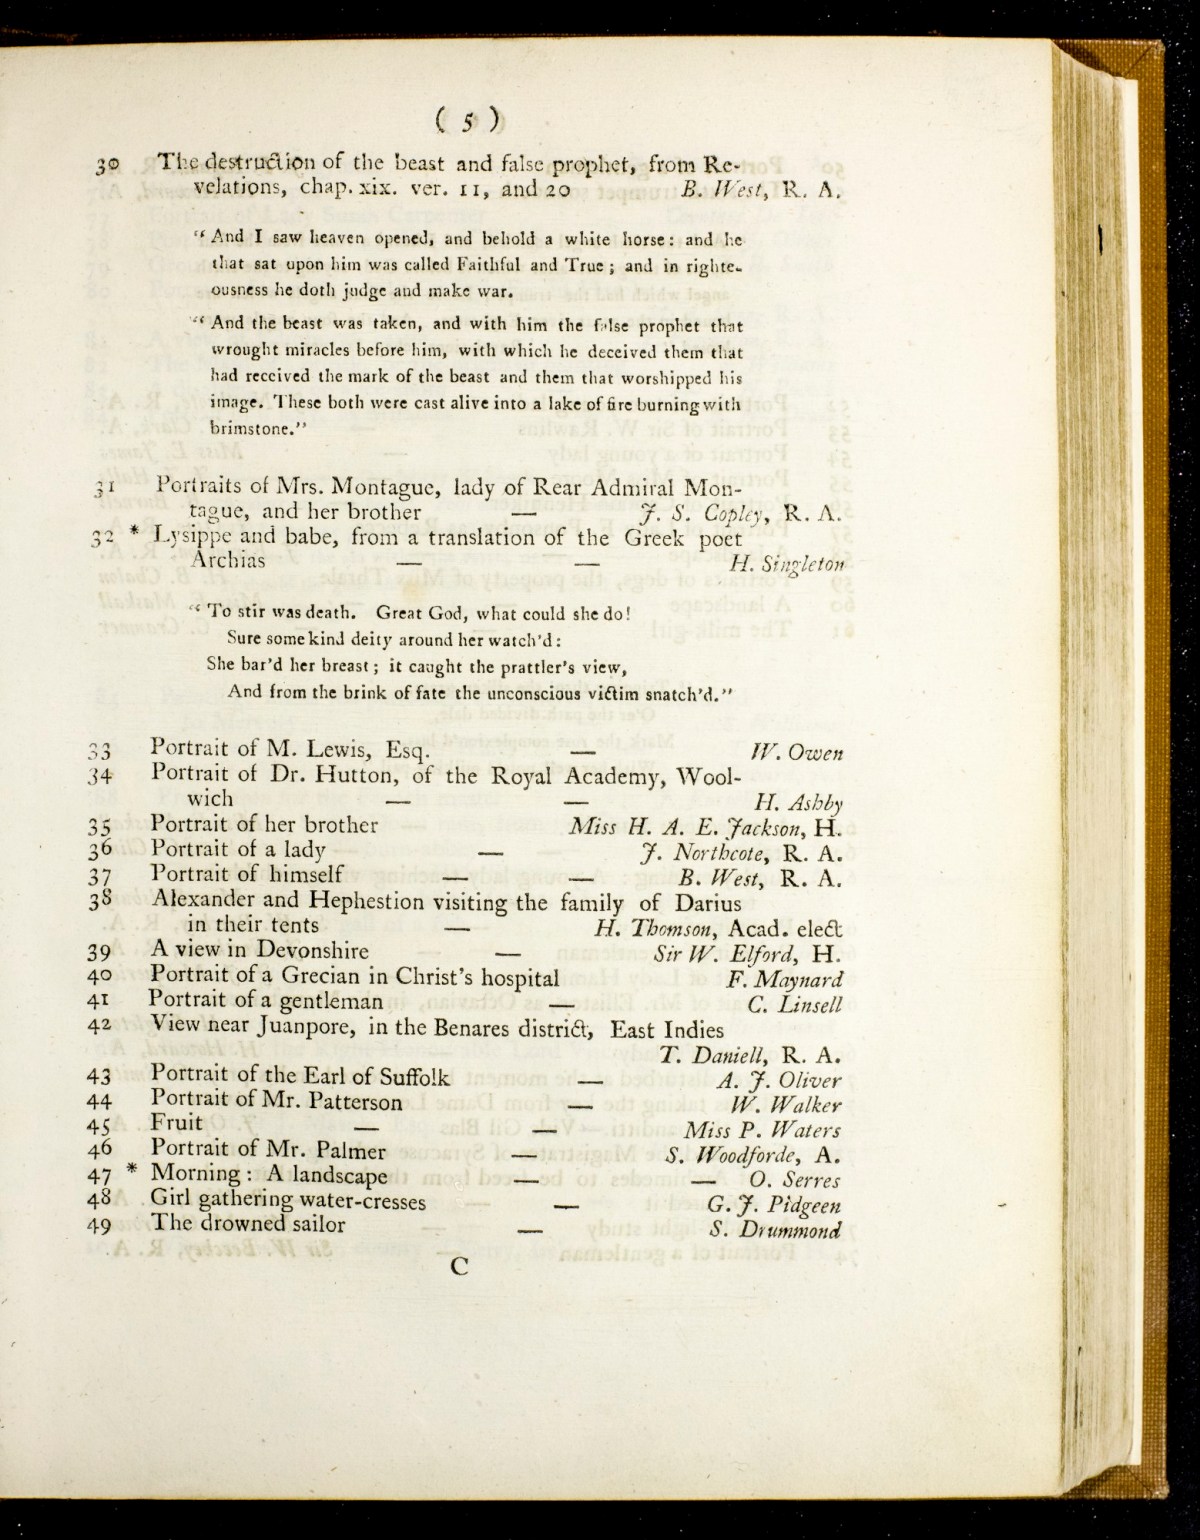 ( 5 )
30 The destruction of the beast and false prophet, from Re-
velations, chap. xix. ver. 11, and 20 B. West, R. A.
“ And I saw heaven opened, and behold a white horse: and he
that sat upon him was called Faithful and True; and in righte-
ousness he doth judge and make war.
“ And the beast was taken, and with him the false prophet that
wrought miracles before him, with which he deceived them that
had received the mark of the beast and them that worshipped his
image. These both were cast alive into a lake of fire burning with
brimstone.”
31 Portraits of Mrs. Montague, lady of Rear Admiral Mon-
tague, and her brother — J. S. Copley, R. A.
32 * Lysippe and babe, from a translation of the Greek poet
Archias — — H. Singleton
“ To stir was death. Great God, what could she do!
Sure some kind deity around her watch'd:
She bar'd her breast; it caught the prattler's view,
And from the brink of fate the unconscious victim snatch'd.”
33 Portrait of M. Lewis, Esq. — W. Owen
34 Portrait of Dr. Hutton, of the Royal Academy, Wool-
wich — — H. Ashby
35 Portrait of her brother Miss H. A. E. Jackson, H.
36 Portrait of a lady — J. Northcote, R. A.
37 Portrait of himself — — B. West, R. A.
38 Alexander and Hephestion visiting the family of Darius
in their tents — H. Thomson, Acad. elect
39 A view in Devonshire — Sir W. Elford, H.
40 Portrait of a Grecian in Christ's hospital F. Maynard
41 Portrait of a gentleman — C. Linsell
42 View near Juanpore, in the Benares district, East Indies
T. Daniell, R. A.
43 Portrait of the Earl of Suffolk — A. J. Oliver
44 Portrait of Mr. Patterson — W. Walker
45 Fruit — — Miss P. Waters
46 Portrait of Mr. Palmer — S. Woodforde, A.
47 * Morning: A landscape — — O. Serres
48 Girl gathering water-cresses — G. J. Pidgeen
49 The drowned sailor — S. Drummond
C